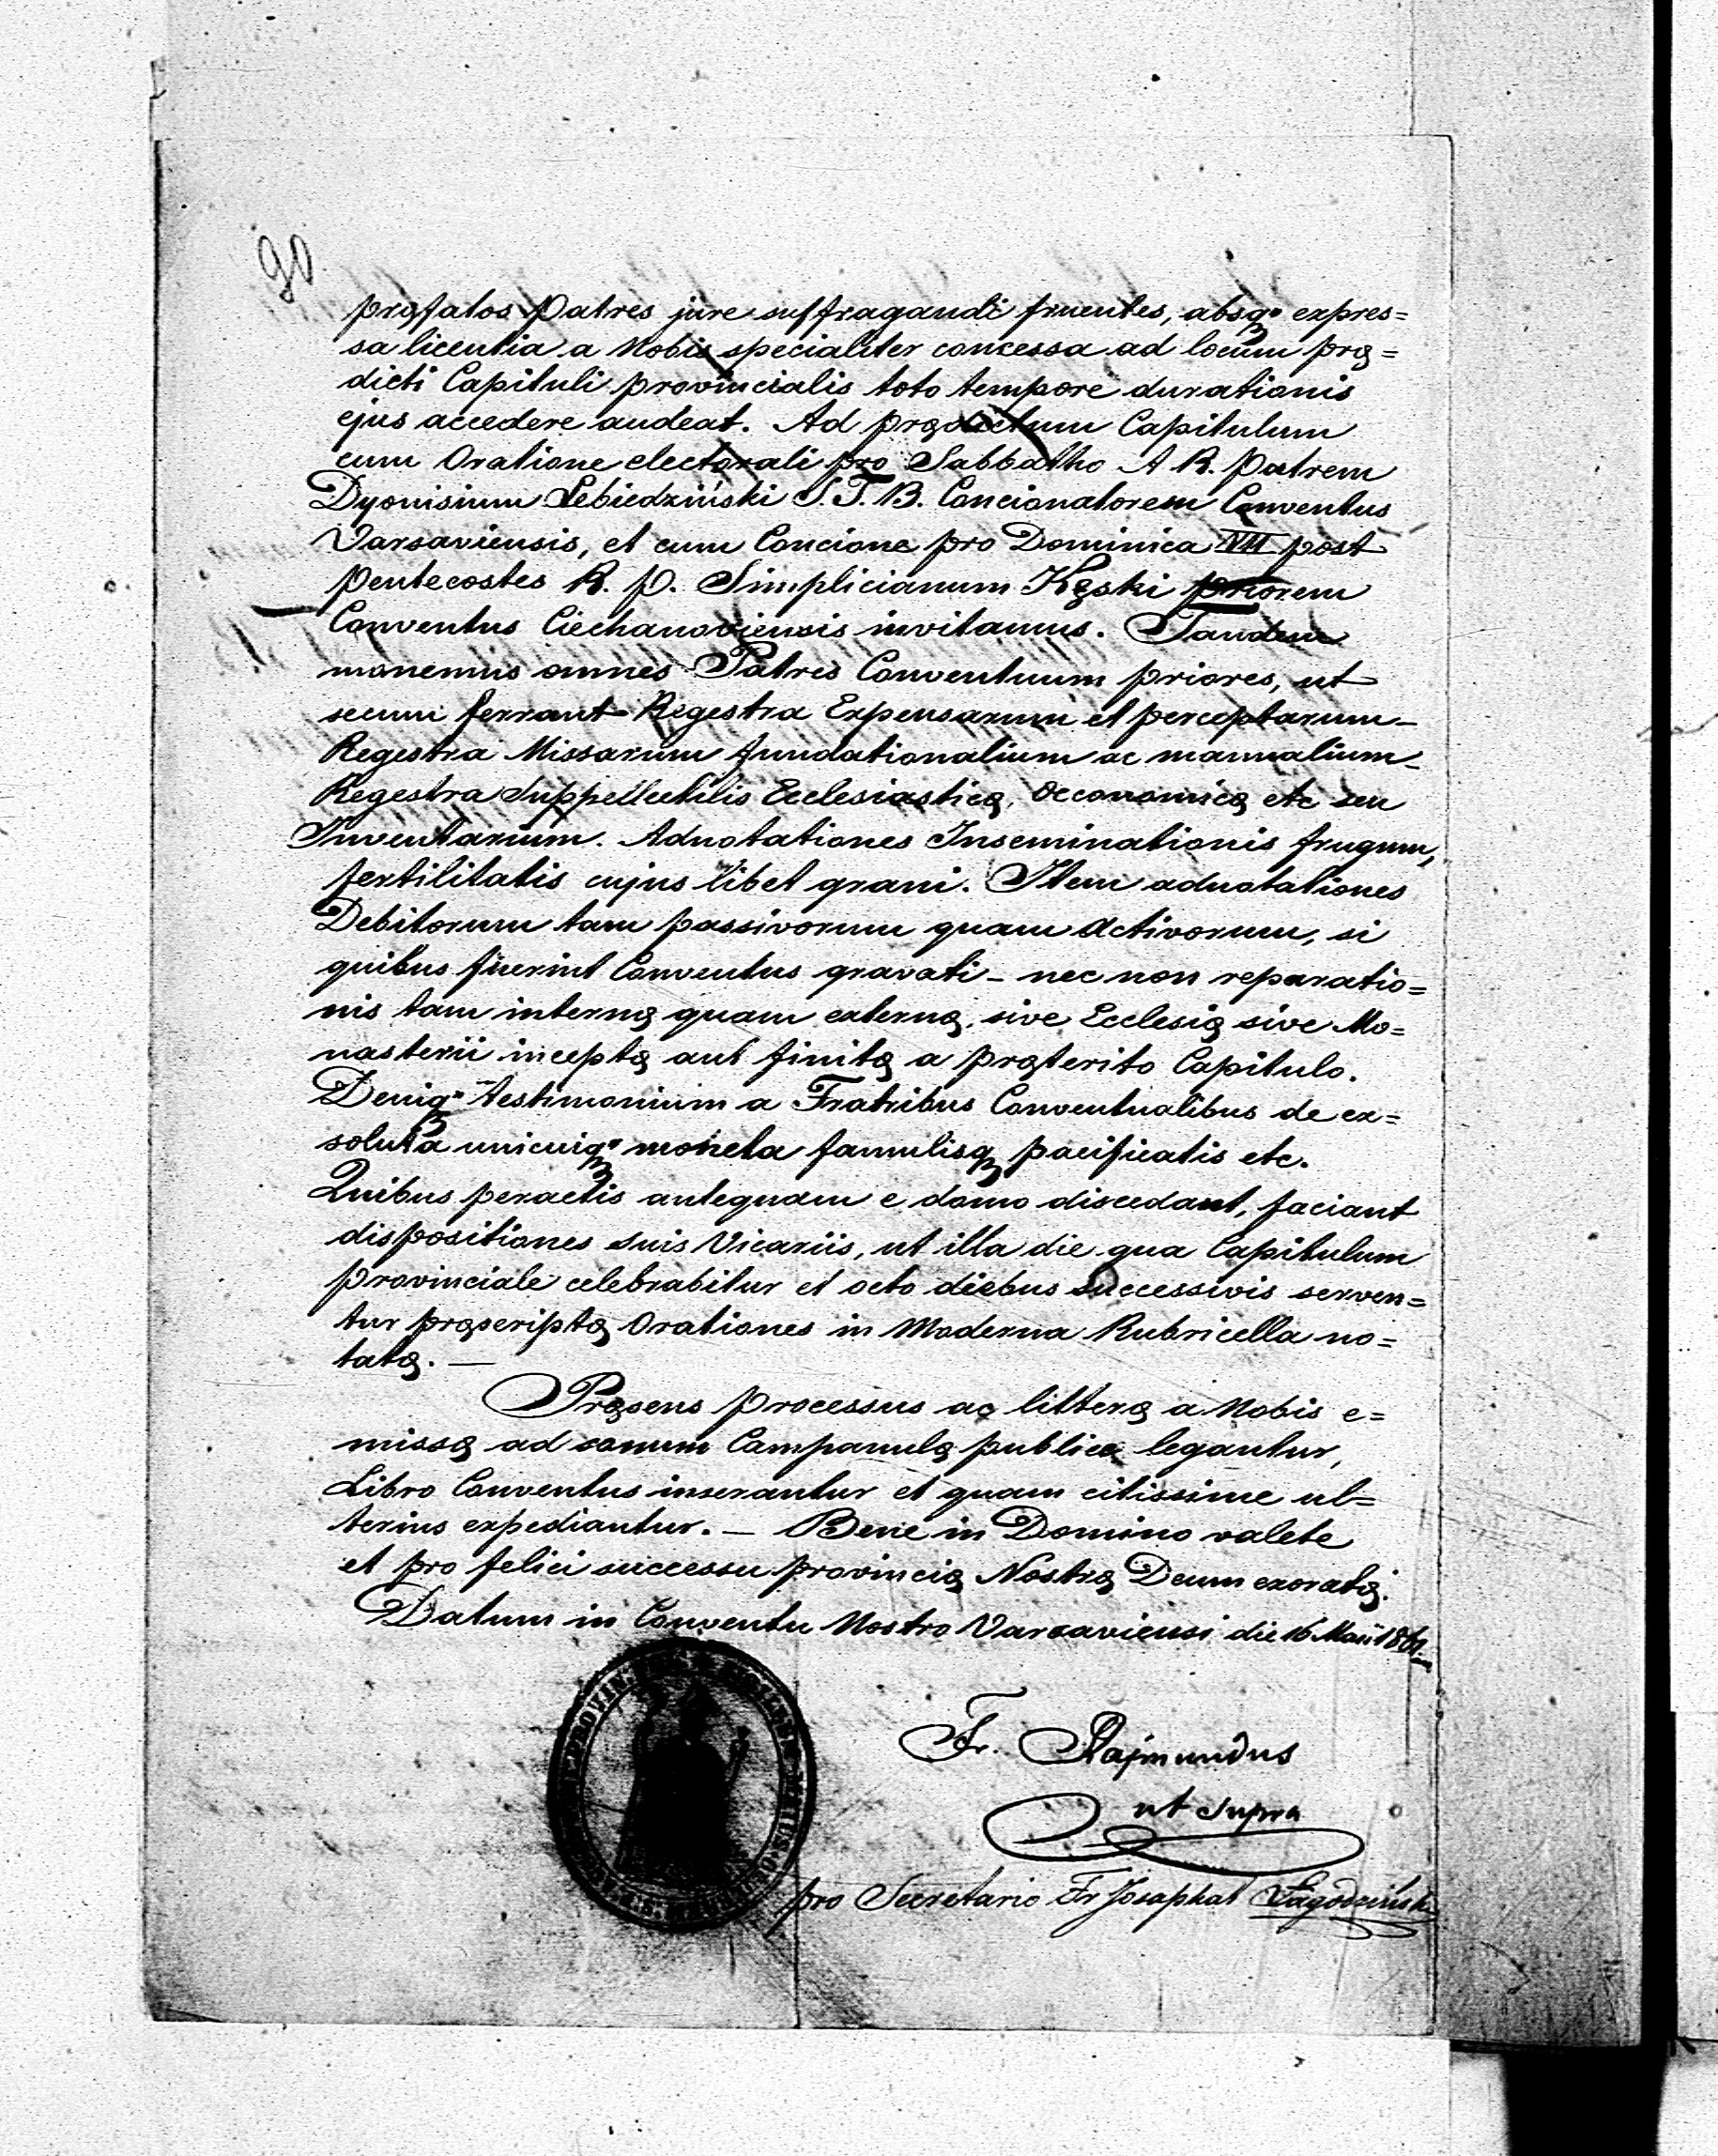 90
pręfatos Patres jure suffragandi fruentes, absqꝫ expres=
sa licentia a Nobis specialiter concessa ad locum prę=
dicti Capituli provincialis toto tempore durationis
ejus accedere audeat. Ad prędictum Capitulum
cum Oratione electorali pro Sabbatho A R. Patrem
Dyonisium Lebiedziński S. T. B. Concionatorem Conventus
Varsaviensis, et cum Concione pro Dominica VII post
Pentecostes R. P. Simplicianum Kęski priorem
Conventus Ciechanoviensis invitamus. Tandem
monemus omnes Patres Conventuum priores, ut
secum ferrant Regestra Expensarum et perceptarum _
Regestra Missarum fundationalium ac manualium _
Regestra Suppellectilis Ecclesiasticę, Oeconomicę etc seu
Inventarium. Adnotationes Inseminationis frugum,
fertilitatis cujus libet grani. Item adnotationes
Debitorum tam passivorum quam Activorum, si
quibus fuerint Conventus gravati – nec non reparatio=
nis tam internę quam externę, sive Ecclesię sive Mo=
nasterii inceptę aut finitę a pręterito Capitulo.
Deniqꝫ testimonium a Fratribus Conventualibus de ex=
soluta unicuiqꝫ moneta famulisqꝫ pacificatis etc.
Quibus peractis antequam e domo discedant, faciant
dispositiones suis Vicariis, ut illa die qua Capitulum
provinciale celebrabitur et octo diebus successivis serven=
tur pręscriptę Orationes in Moderna Rubricella no=
tatę. —
Pręsens processus ac litterę a Nobis e=
missę ad sonum Campanulę publice legantur,
Libro Conventus inserantur et quam citissime ul=
terius expediantur. — Bene in Domino valete
et pro felici successu provincię Nostrę Deum exoratę.
Datum in Conventu Nostro Varsaviensi die 16 Maii
Fr. Rajmundus
ut Supra
pro Secretario Fr Josaphat